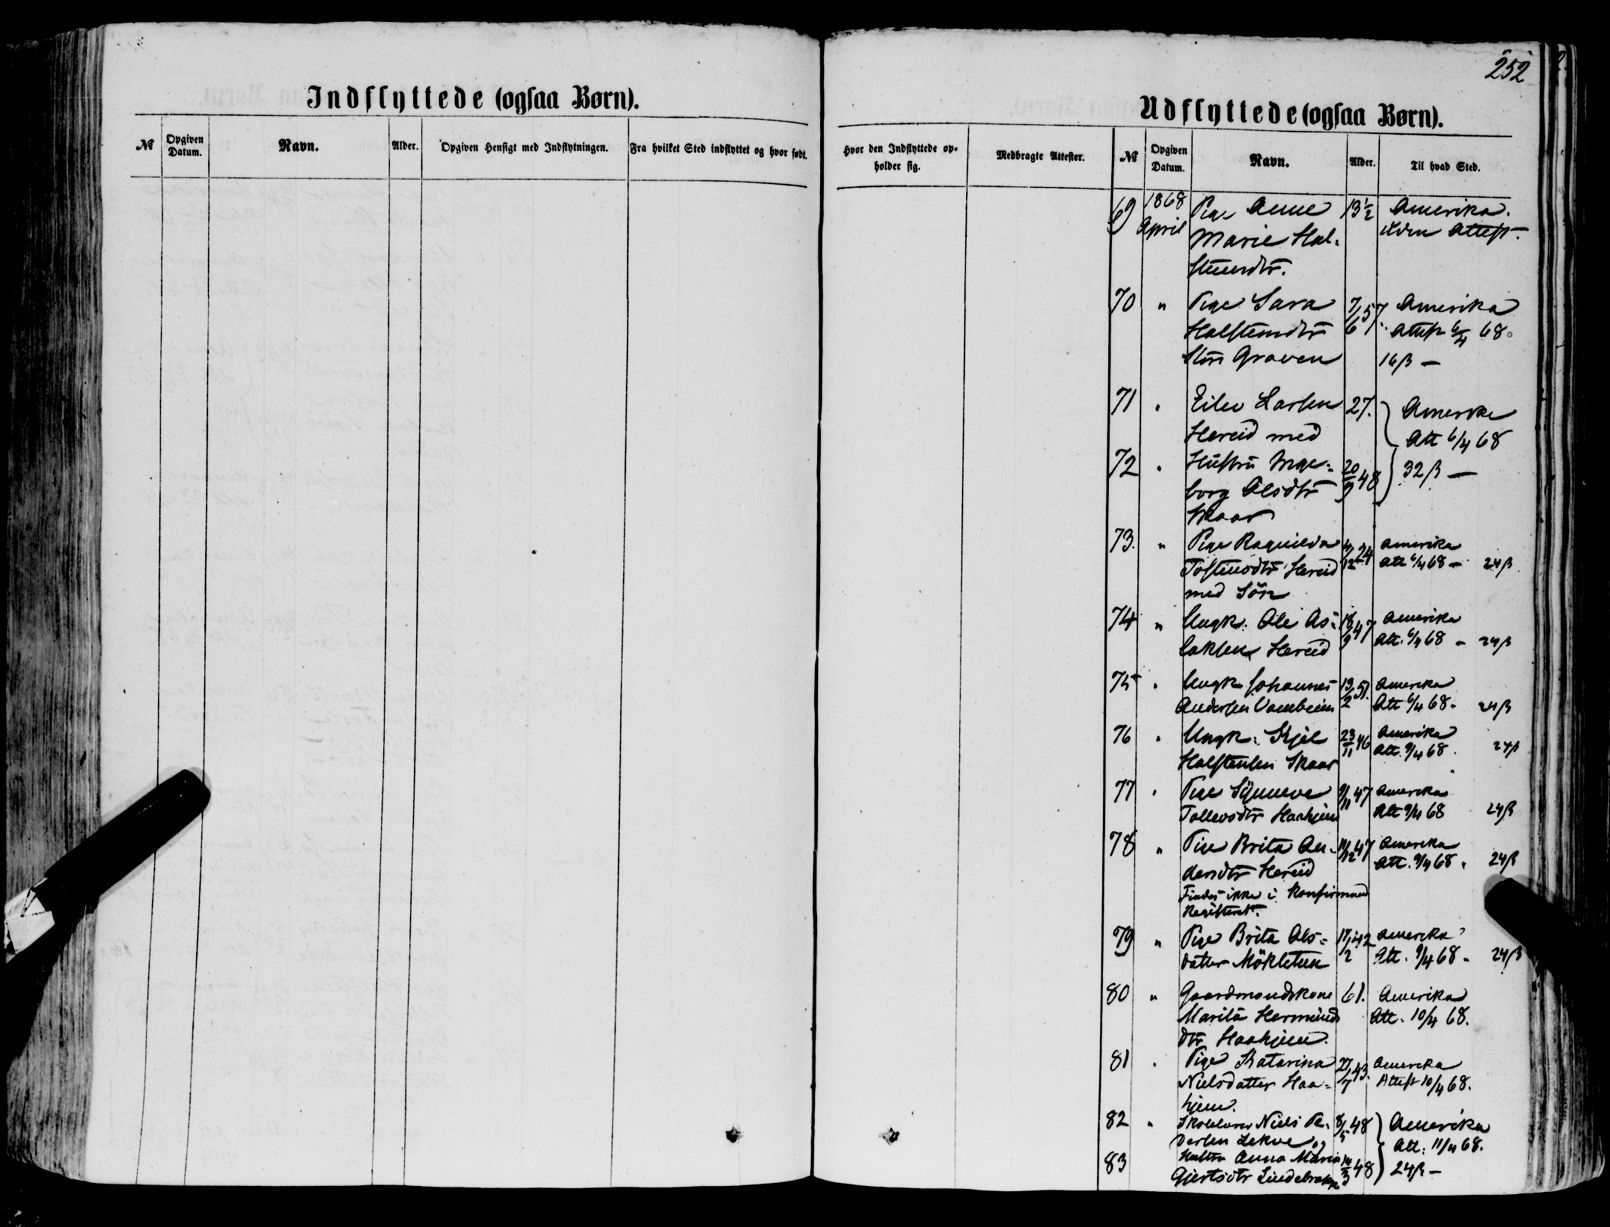 252
Indflyttede (ogsaa Børn).
№ Opgiven Datum. Navn. Alder. Opgiven Hensigt med Indflytningen. Fra hvilket Sted indflyttet og hvor født.
Udflyttede (ogsaa Børn).
Hvor den Indflyttede opholder sig. Medbragte Attester. № Opgiven Datum. Navn. Alder. Til hvad Sted.
69 1868 Pige Anne 13½ Amerika.
April Marie Hal- uden Attest.
stensdtr.
70 " Pige Sara 7/6 57. Amerika
Halstensdtr Attest 6/4 68.
Graven 16 β —
71 " Eilev Larsen 27. Amerika
Hereid med Att 6/4 68
72 " Hustru Inge- 20/9 48 32 β —
borg Olsdtr
Skaar
73. " Pige Ragnilda 4/12 24 Amerika
Tostensdtr Hereid Att 6/4 68 — 24 β
med Søn
74 " Ungk. Ole As- 18/9 47 Amerika
laksen Hereid Att. 6/4 68 — 24 β
75 " Ungk. Johannes 19/2 51. Amerika
Andersen Att 6/4 68. 24 β
76 " Ungk. Kjel 23/11 46 Amerika
Halstensen Skaar Att. 9/4 68 24 β
77 " Pige Synneve 9/11 47 Amerika
Tollevsdtr Haahjem Att 9/4 68 24 β
78 " Pige Brita An- 11/12 47 Amerika
dersdtr Hereid Att. 9/4 68. 24 β
Findes ikke i Konfirmand
Registeret.
79 " Pige Brita Ols- 17/2 42 Amerika
datter Mökletun Att. 9/4 68. 24 β
80 " Gaardmandskone 61. Amerika
Marita Hermunds Att. 10/4 68.
dtr Haahjem.
81 " Pige Katarina 27/7 43. Amerika
Nielsdatter Haa- Attest 10/4 68.
hjem.
82 " Skolelærer Niels Pe- 8/5 48 Amerika
dersen Lekve og Att. 11/4 68.
83 Hustru Anna Maria 14/3 48 24 β —
Gjertsdtr Lindebrække